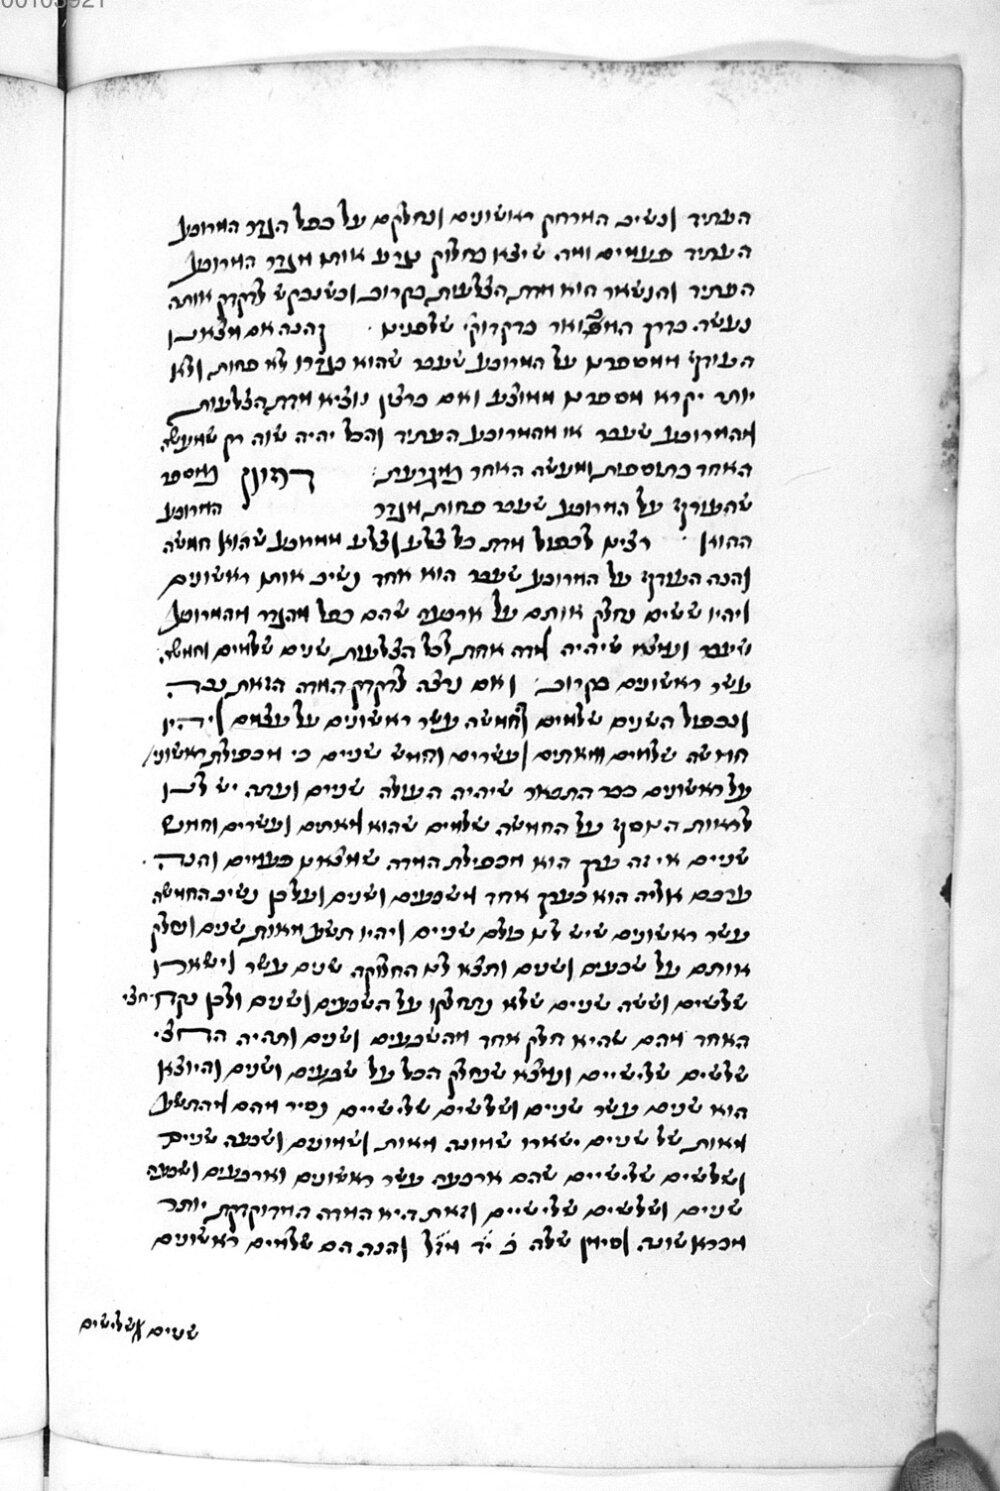 00103921
העתיד ונשיב המרחק ראשונים ונחלקם על כפל הגדר המרובע
העתיד פעמים ומה שיצא מחלוק נגרע אותו מגדר המרובע
העתיד והנשאר הוא מדת הצלעות בקרוב וכשנבקש לדקדק אותה
נעשה כדרך המבואר בדקדוקי שלפנים והנה אם מצאנו
העודף ממספרם על המרובע שעבר שהוא כגדרו לא פחות ולא
יותר יקרא מספרם ממוצע ואם נרצה נוציא מדת הצלעות
מהמרובע שעבר או מהמרובע העתיד והכל יהיה שוה רק שמעשה
האחד בתוספות ומעשה האחר במגרעת: דמיון במספר
שהעודף על המרובע שעבר פחות מגדר המרובע
ההוא רצינו לכפול מדת כל צלע וצלע ממרובע שהוא חמשה
והנה העודף על המרובע שעבר הוא אחד נשיב אותו ראשונים
ויהיו ששים נחלק אותם על ארבעה שהם כפל מהגדר מהמרובע
שעבר ונמצא שיהיה מדה אחת לכל הצלעות שנים שלמים וחמשה
עשר ראשונים בקרוב ואם נרצה לדקדק המדה הזאת נכה
ונכפול השנים שלמים וחמשה עשר ראשונים על עצמם ויהיו
חמשה שלמים ומאתים ועשרים וחמש שניים כי מכפילת ראשוני׳
על ראשונים כבר התבאר שיהיה העולה שניים ועתה יש לנו
לראות המוסף על החמשה שלמים שהוא מאתים ועשרים וחמש
שניים אי זה ערך הוא מכפילת המדה שמצאנו פעמים והנה
ערכם אליה הוא כערך אחד משבעים ושנים ועל כן נשיב החמשה
עשר ראשונים שיש לנו כולם שניים ויהיו תשע מאות שנים ונחלק
אותם על שבעים ושנים ותצא לנו החלוקה שנים עשר וישארו
שלשים וששה שניים שלא נתחלקו על השבעים ושנים ולכן נקח חצי
האחד מהם שהיא חלק אחד מהשבעים ושנים ותהיה החצי
שלשים שלישיים ונמצא שנחלק הכל על שבעים ושנים והיוצא
הוא שנים עשר שניים ושלשים שלישיים נסיר מהם מהתשע
מאות של שניים ישארו שמונה מאות ושמונים ושבעה שניים
ושלשים שלישיים שהם ארבעה עשר ראשונים וארבעים ושבעה
שניים ושלשים שלישיים וזאת היא המדה המדוקדקת יותר
מבראשונה וסימן שלה ב׳ י״ד מ״ז ל׳ והנה הם שלמים ראשונים
שניים ושלישים